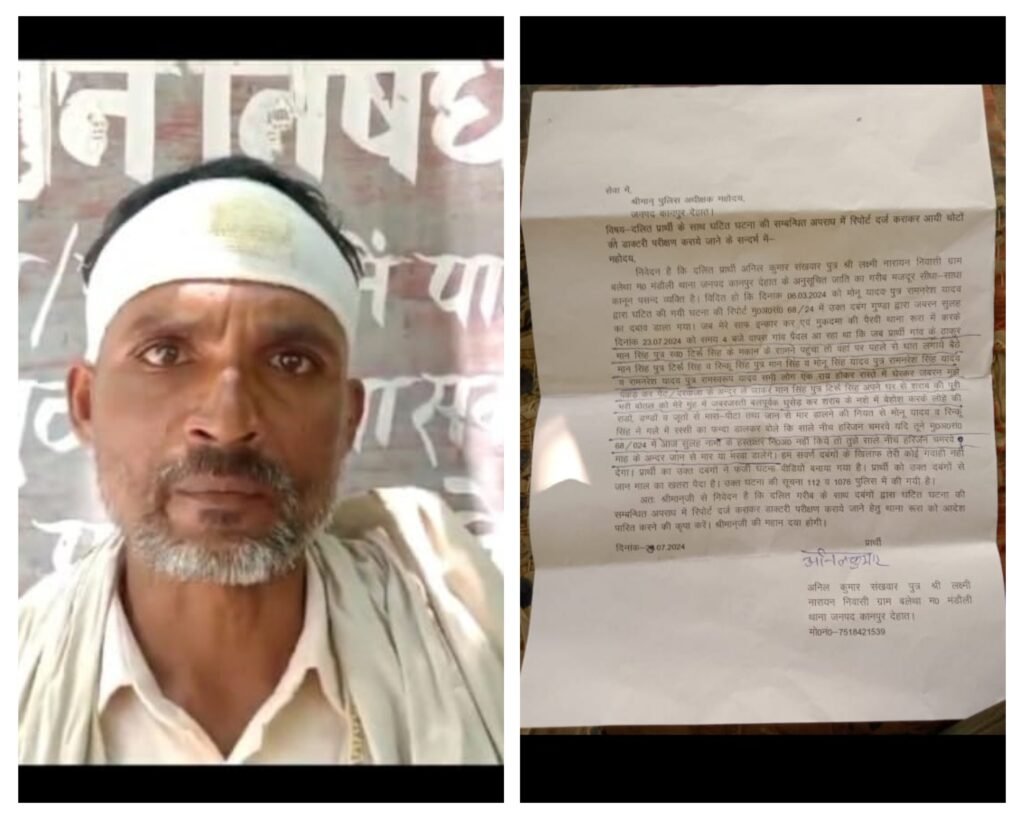 न निषेध
/
नं पा
सेवा में,
श्रीमान् पुलिस अधीक्षक महोदय,
जनपद कानपुर देहात।
विषय–दलित प्रार्थी के साथ घटित घटना की सम्बन्धित अपराध में रिपोर्ट दर्ज कराकर आयी चोटों
की डाक्टरी परीक्षण कराये जाने के सन्दर्भ में–
महोदय,
निवेदन है कि दलित प्रार्थी अनिल कुमार संखवार पुत्र श्री लक्ष्मी नारायन निवासी ग्राम
बलेथा म० मंडौली थाना जनपद कानपुर देहात के अनुसूचित जाति का गरीब मजदूर सीधा–साधा
कानून पसन्द व्यक्ति है। विदित हो कि दिनांक 06.03.2024 को मोनू यादव पुत्र रामनरेश यादव
द्वारा घटित की गयी घटना की रिपोर्ट मु०अ०सं० 68/24 में उक्त दबंग गुण्डा द्वारा जबरन सुलह
का दबाव डाला गया। जब मेरे साफ इन्कार कर एवं मुकदमा की पैरवी थाना रूरा में करके
दिनांक 23.07.2024 को समय 4 बजे वापस गांव पैदल आ रहा था कि जब प्रार्थी गांव के ठाकुर
मान सिंह पुत्र स्व० टिर्रू सिंह के मकान के सामने पहुंचा तो वहां पर पहले से घात लगाये बैठे
मान सिंह पुत्र टिर्रू सिंह व रिन्कू सिंह पुत्र मान सिंह व मोनू सिंह यादव पुत्र रामनरेश सिंह यादव
व रामनरेश यादव पुत्र रामस्वरूप यादव सभी लोग एक राय होकर रास्ते में घेरकर जबरन मुझे
पकड़ कर गेट/दरवाजा के अन्दर ले जाकर मान सिंह पुत्र टिर्रू सिंह अपने घर से शराब की पूरी
भरी बोतल को मेरे मुंह में जबरजस्ती बलपूर्वक घुसेड़ कर शराब के नशे में बेहोश करके लोहे की
राडों, डण्डो व जूतों से मारा–पीटा तथा जान से मार डालने की नियत से मोनू यादव व रिन्कू
सिंह ने गले में रस्सी का फन्दा डालकर बोले कि साले नीच हरिजन चमरवे यदि तूने मु०अ०सं०
68/024 में आज सुलह नामा के हस्ताक्षर नि०अ० नहीं किये तो तुझे साले नीच हरिजन चमरवे
माह के अन्दर जान से मार या मरवा डालेंगे। हम सवर्ण दबंगों के खिलाफ तेरी कोई गवाही नहीं
देगा। प्रार्थी का उक्त दबंगों ने फर्जी घटना वीडियो बनाया गया है। प्रार्थी को उक्त दबंगों से
जान माल का खतरा पैदा है। उक्त घटना की सूचना 112 व 1076 पुलिस में की गयी है।
अतः श्रीमानजी से निवेदन है कि दलित गरीब के साथ दबंगों द्वारा घटित घटना की
सम्बन्धित अपराध में रिपोर्ट दर्ज कराकर डाक्टरी परीक्षण कराये जाने हेतु थाना रूरा को आदेश
पारित करने की कृपा करें। श्रीमानजी की महान दया होगी।
दिनांक– .07.2024
प्रार्थी
अनिल कुमार
अनिल कुमार संखवार पुत्र श्री लक्ष्मी
नारायन निवासी ग्राम बलेथा म० मंडौली
थाना जनपद कानपुर देहात।
मो०नं०–7518421539